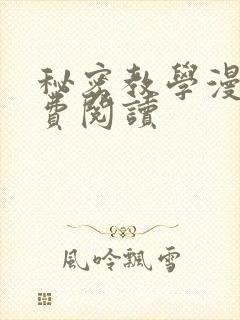 秘密教學漫
費閱讀
風吟飄雪